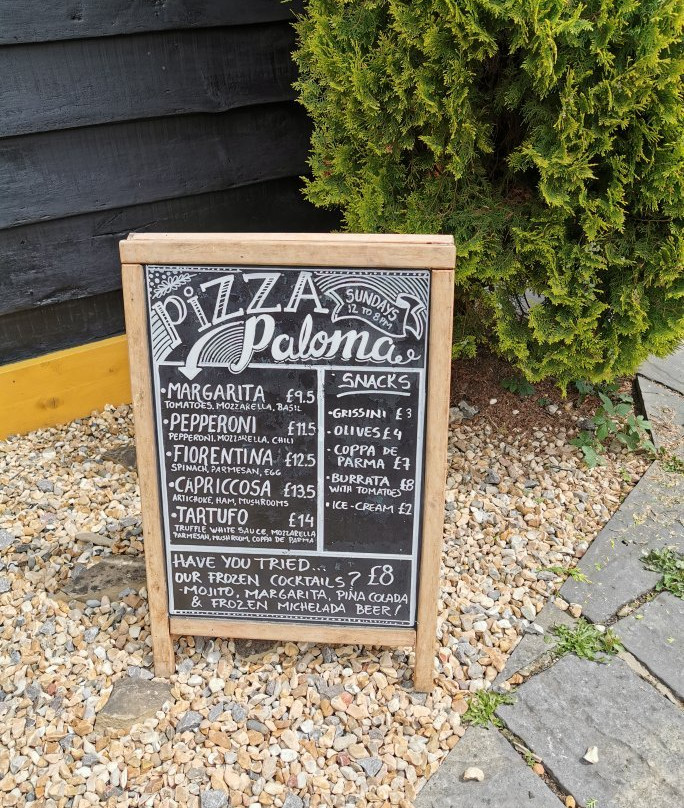 PIZZA
Paloma
SUNDAYS
12 TO 8PM
·MARGARITA £9.5
TOMATOES, MOZZARELLA, BASIL
·PEPPERONI £11.5
PEPPERONI, MOZZARELLA, CHILI
·FIORENTINA £12.5
SPINACH, PARMESAN, EGG
·CAPRICCOSA £13.5
ARTICHOKE, HAM, MUSHROOMS
·TARTUFO £14
TRUFFLE WHITE SAUCE, MOZZARELLA
PARMESAN, MUSHROOM, COPPA DE PARMA
SNACKS
·GRISSINI £3
·OLIVES £4
·COPPA DE
PARMA £7
·BURRATA £8
WITH TOMATOES
·ICE-CREAM £2
HAVE YOU TRIED...
OUR FROZEN COCKTAILS? £8
·MOJITO, MARGARITA, PIÑA COLADA
& FROZEN MICHELADA BEER!